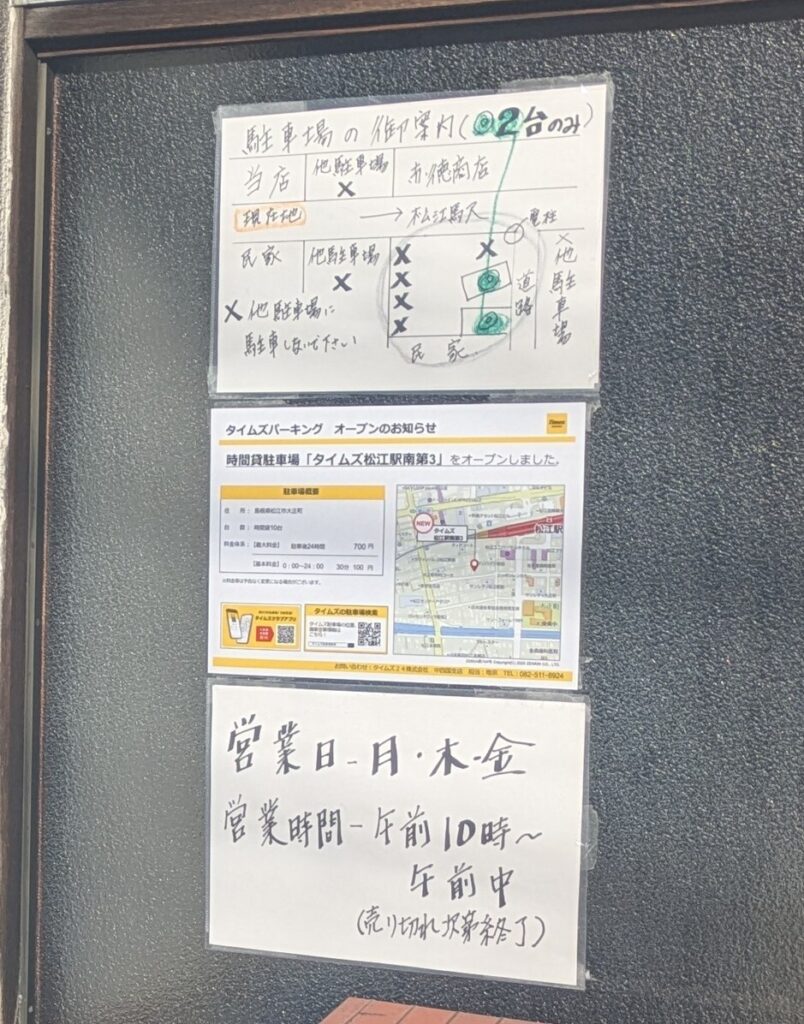 駐車場の御案内(◎2台のみ)
当店
他駐車場
×
赤徳商店
現在地
→松江駅
電柱
民家
他駐車場
×
×
×
×
×
×
◎
◎
道路
×他駐車場
×他駐車場に
駐車しないで下さい
民家
タイムズパーキング オープンのお知らせ
時間貸駐車場「タイムズ松江駅南第3」をオープンしました。
駐車場概要
住 所: 島根県松江市大正町
台 数: 時間貸10台
料金体系: 【最大料金】 駐車後24時間 700円
【基本料金】 0:00~24:00 30分 100円
※料金等は予告なく変更になる場合がございます。
NEW
タイムズ
松江駅南第3
松江駅
タイムズクラブアプリ
タイムズの駐車場検索
タイムズ駐車場の位置、
満車空車情報は
こちら!
お問い合わせ:タイムズ24株式会社 中四国支店
TEL:082-511-8924
営業日-月・木・金
営業時間-午前10時~
午前中
(売り切れ次第終了)